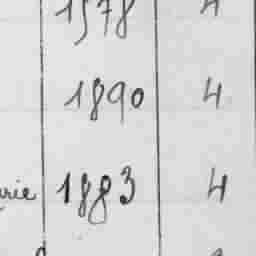 1578 4
1890 4
rie 1883 4